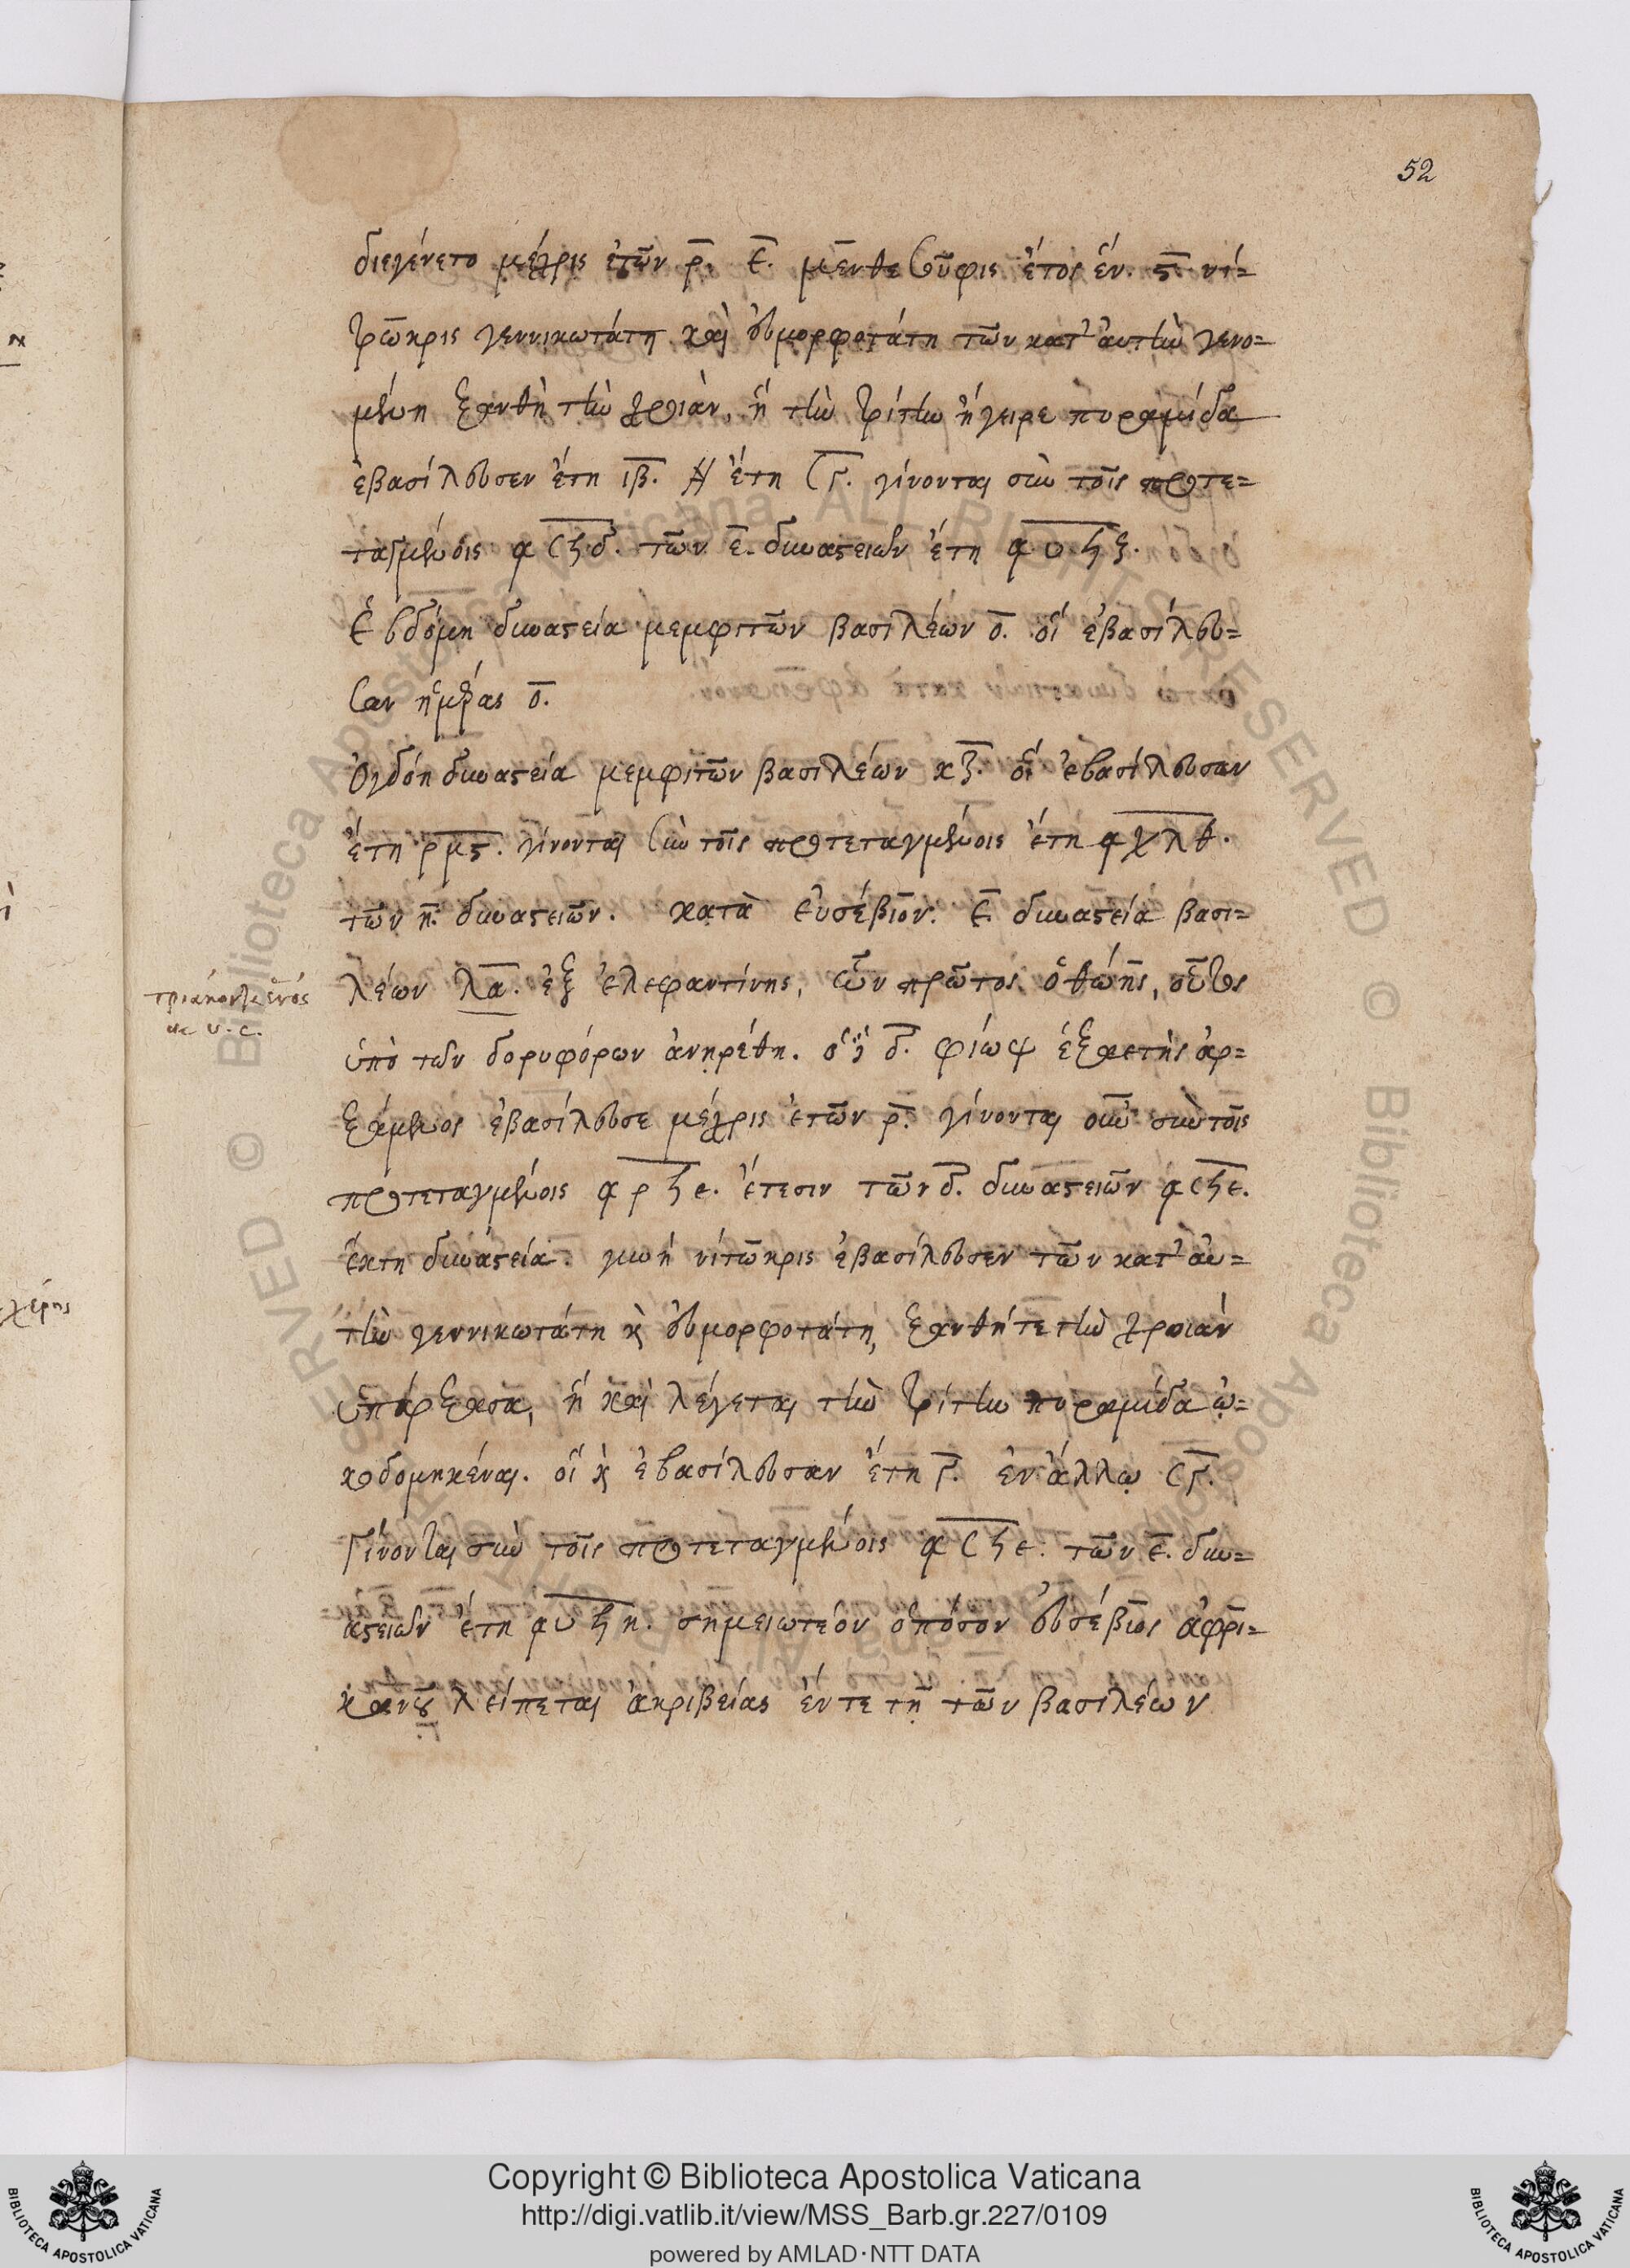 52
διεγένετο μέχρις ἐτῶν ρ̅. ε̅. μενθεσοῦφις ἔτος ἕν. ς̅. νί=
τωκρις γεννικωτάτη καὶ εὐμορφοτάτη τῶν κατ' αὐτὴν γενο=
μένη ξανθὴ τὴν χροιὰν, ἣ τὴν τρίτην ἤγειρε πυραμίδα
ἐβασίλευσεν ἔτη ιβ̅. ἔτη σγ̅. γίνονται σὺν τοῖς προτε=
ταγμένοις ͵ασϟδ. τῶν ε̅. δυναστειῶν ἔτη ͵αυϟζ.
Ἑβδόμη δυναστεία μεμφιτῶν βασιλέων ο̅. οἳ ἐβασίλευ=
σαν ἡμέρας ο̅.
Ὀγδόη δυναστεία μεμφιτῶν βασιλέων κζ̅. οἳ ἐβασίλευσαν
ἔτη ρμς̅. γίνονται σὺν τοῖς προτεταγμένοις ἔτη ͵αχλθ.
τῶν η̅. δυναστειῶν. κατὰ εὐσέβιον. ε̅ δυναστεία βασι=
λέων λα̅. ἐξ ἐλεφαντίνης, ὧν πρῶτος ὀθώης, οὗτος
τριάκοντα ἑνός
ὑπὸ τῶν δορυφόρων ἀνῃρέθη. ὁ δ̅. φίωψ ἑξαετὴς ἀρ=
ξάμενος ἐβασίλευσε μέχρις ἐτῶν ρ̅. γίνονται οὖν σὺν τοῖς
προτεταγμένοις ͵αρϟε. ἔτεσιν τῶν δ̅. δυναστειῶν ͵ασϟε.
ἕκτη δυναστεία. γυνὴ νίτωκρις ἐβασίλευσεν τῶν κατ' αὐ=
τὴν γεννικωτάτη κὶ εὐμορφοτάτη, ξανθή τε τὴν χροιὰν
ὑπάρξασα, ἣ καὶ λέγεται τὴν τρίτην πυραμίδα ᾠ=
κοδομηκέναι. οἳ κὶ ἐβασίλευσαν ἔτη γ̅. ἐν ἄλλῳ σγ̅.
Γίνονται σὺν τοῖς προτεταγμένοις ͵ασϟε. τῶν ε̅. δυν=
αστειῶν ἔτη ͵αυϟη. σημειωτέον ὁπόσον εὐσέβιος ἀφρι=
κανοῦ λείπεται ἀκριβείας ἔν τε τῇ τῶν βασιλέων
Copyright © Biblioteca Apostolica Vaticana
http://digi.vatlib.it/view/MSS_Barb.gr.227/0109
powered by AMLAD·NTT DATA